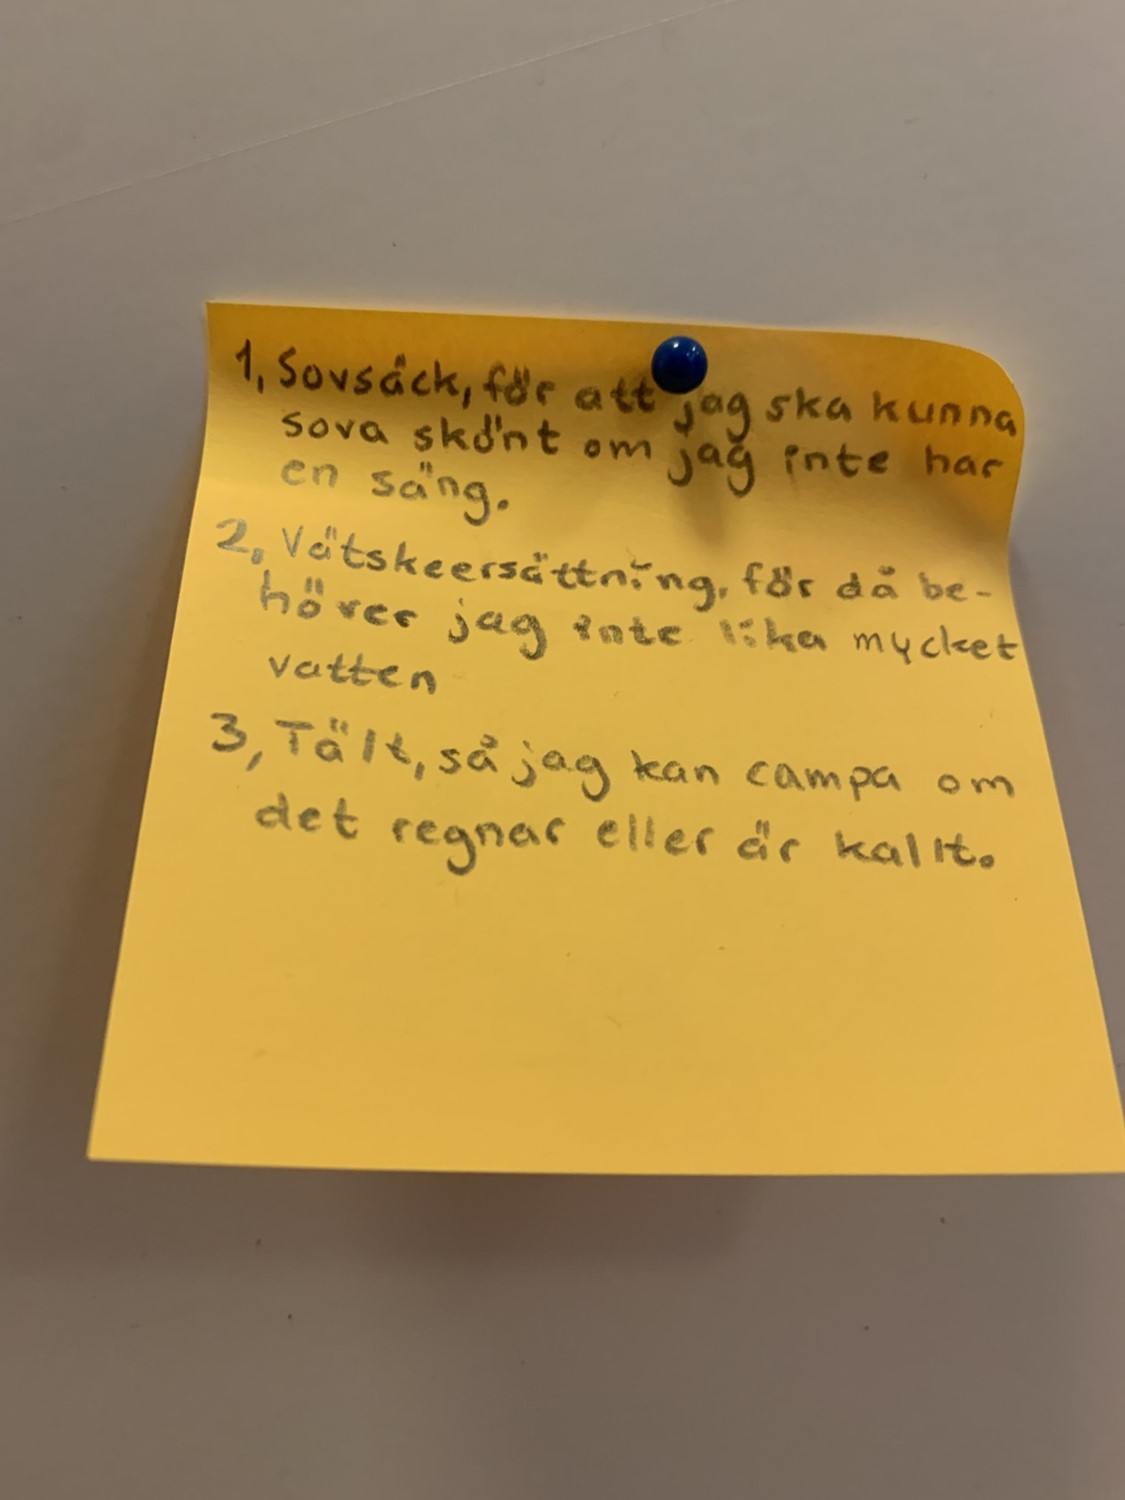 1, Sovsäck, för att jag ska kunna
sova skönt om jag inte har
en säng.
2, Vätskeersättning, för då be-
höver jag inte lika mycket
vatten
3, Tält, så jag kan campa om
det regnar eller är kallt.